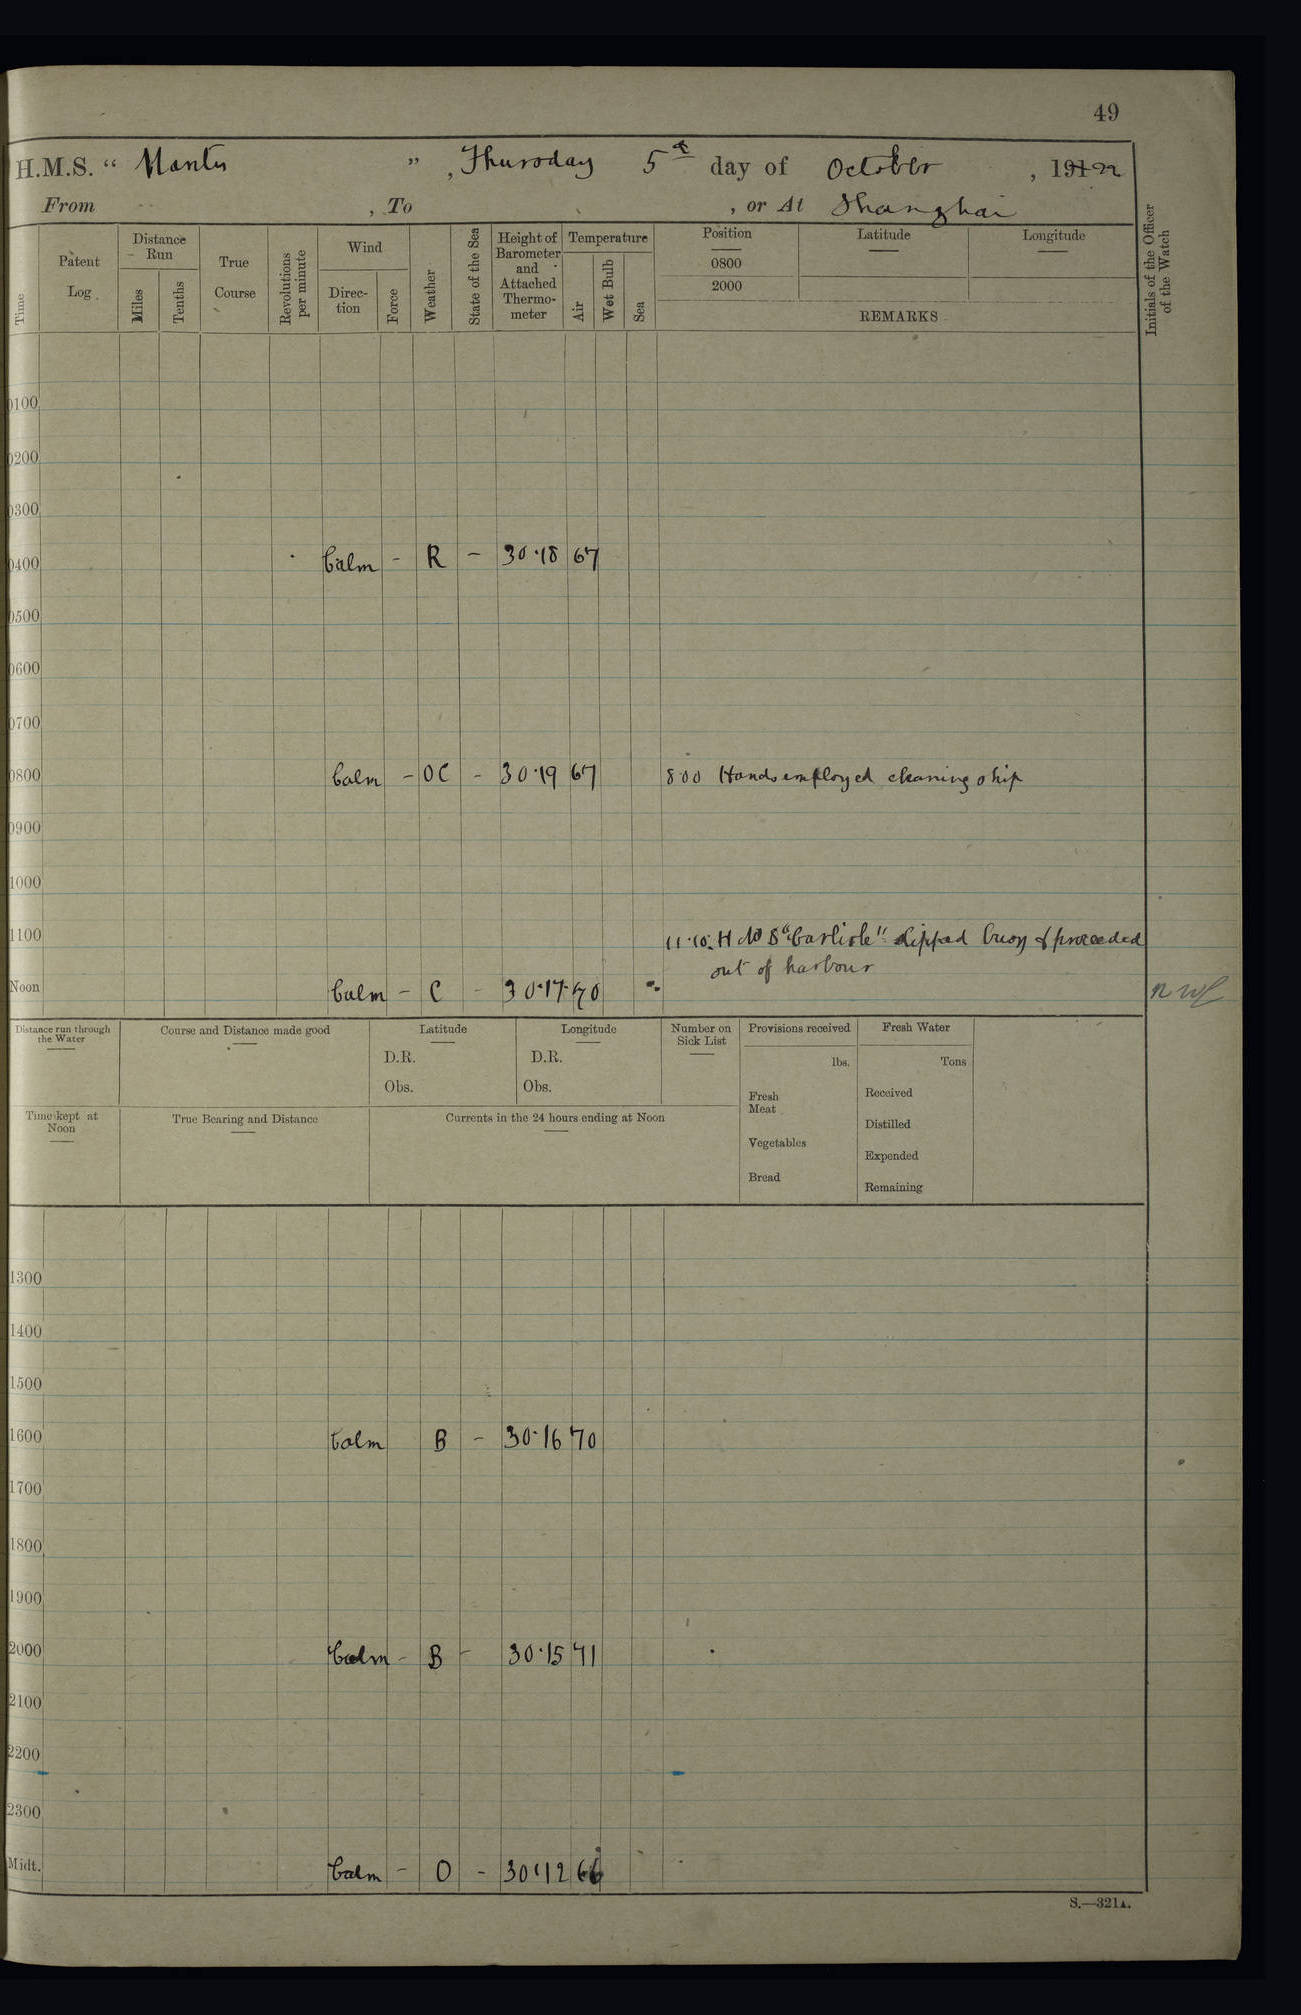 49
H.M.S. “ Mantis ” , Thursday 5th day of October , 1922
From , To , or At Shanghai
Time
Patent Log
Distance Run
Miles
Tenths
True Course
Revolutions per minute
Wind
Direction
Force
Weather
State of the Sea
Height of Barometer and Attached Thermo-meter
Temperature
Air
Wet Bulb
Sea
Position
0800
2000
Latitude
Longitude
REMARKS
Initials of the Officer of the Watch
0100
0200
0300
0400 Calm - R - 30.18 67
0500
0600
0700
0800 Calm - OC - 30.19 67 8.00 Hands employed cleaning ship
0900
1000
1100 11.10. H M S "Carlisle" slipped buoy & proceeded
out of harbour
Noon Calm - C - 30.17 70
Distance run through the Water
Course and Distance made good
Latitude
D.R.
Obs.
Longitude
D.R.
Obs.
Number on Sick List
Provisions received
lbs.
Fresh Meat
Vegetables
Bread
Fresh Water
Tons
Received
Distilled
Expended
Remaining
Time kept at Noon
True Bearing and Distance
Currents in the 24 hours ending at Noon
1300
1400
1500
1600 Calm B - 30.16 70
1700
1800
1900
2000 Calm - B - 30.15 71
2100
2200
2300
Midt. Calm - O - 30.12 66
S.—321A.